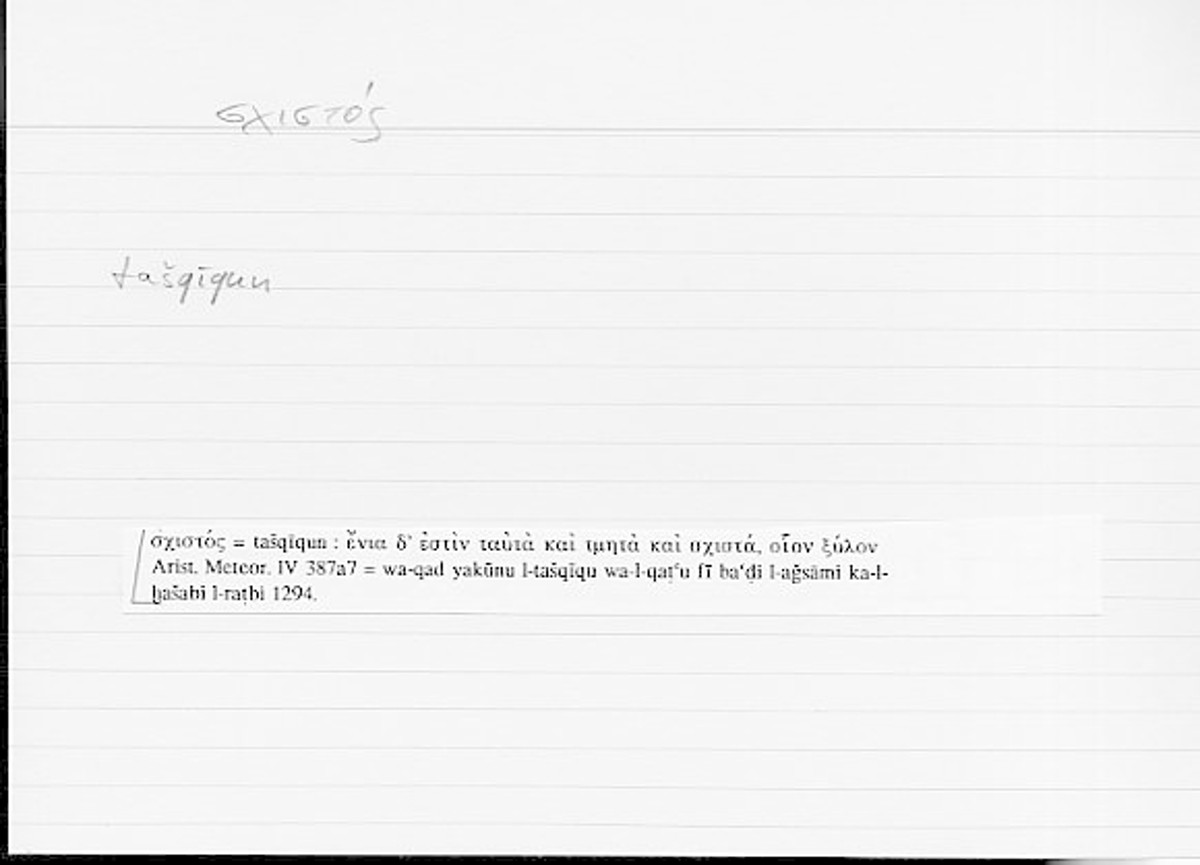 σχιστός
tašqīqun
σχιστός = tašqīqun : ἔνια δ' ἐστὶν ταὐτὰ καὶ τμητὰ καὶ σχιστά, οἷον ξύλον
Arist. Meteor. IV 387a7 = wa-qad yakūnu l-tašqīqu wa-l-qaṭʿu fī baʿḍi l-aǧsāmi ka-l-
ḫašabi l-raṭbi 1294.